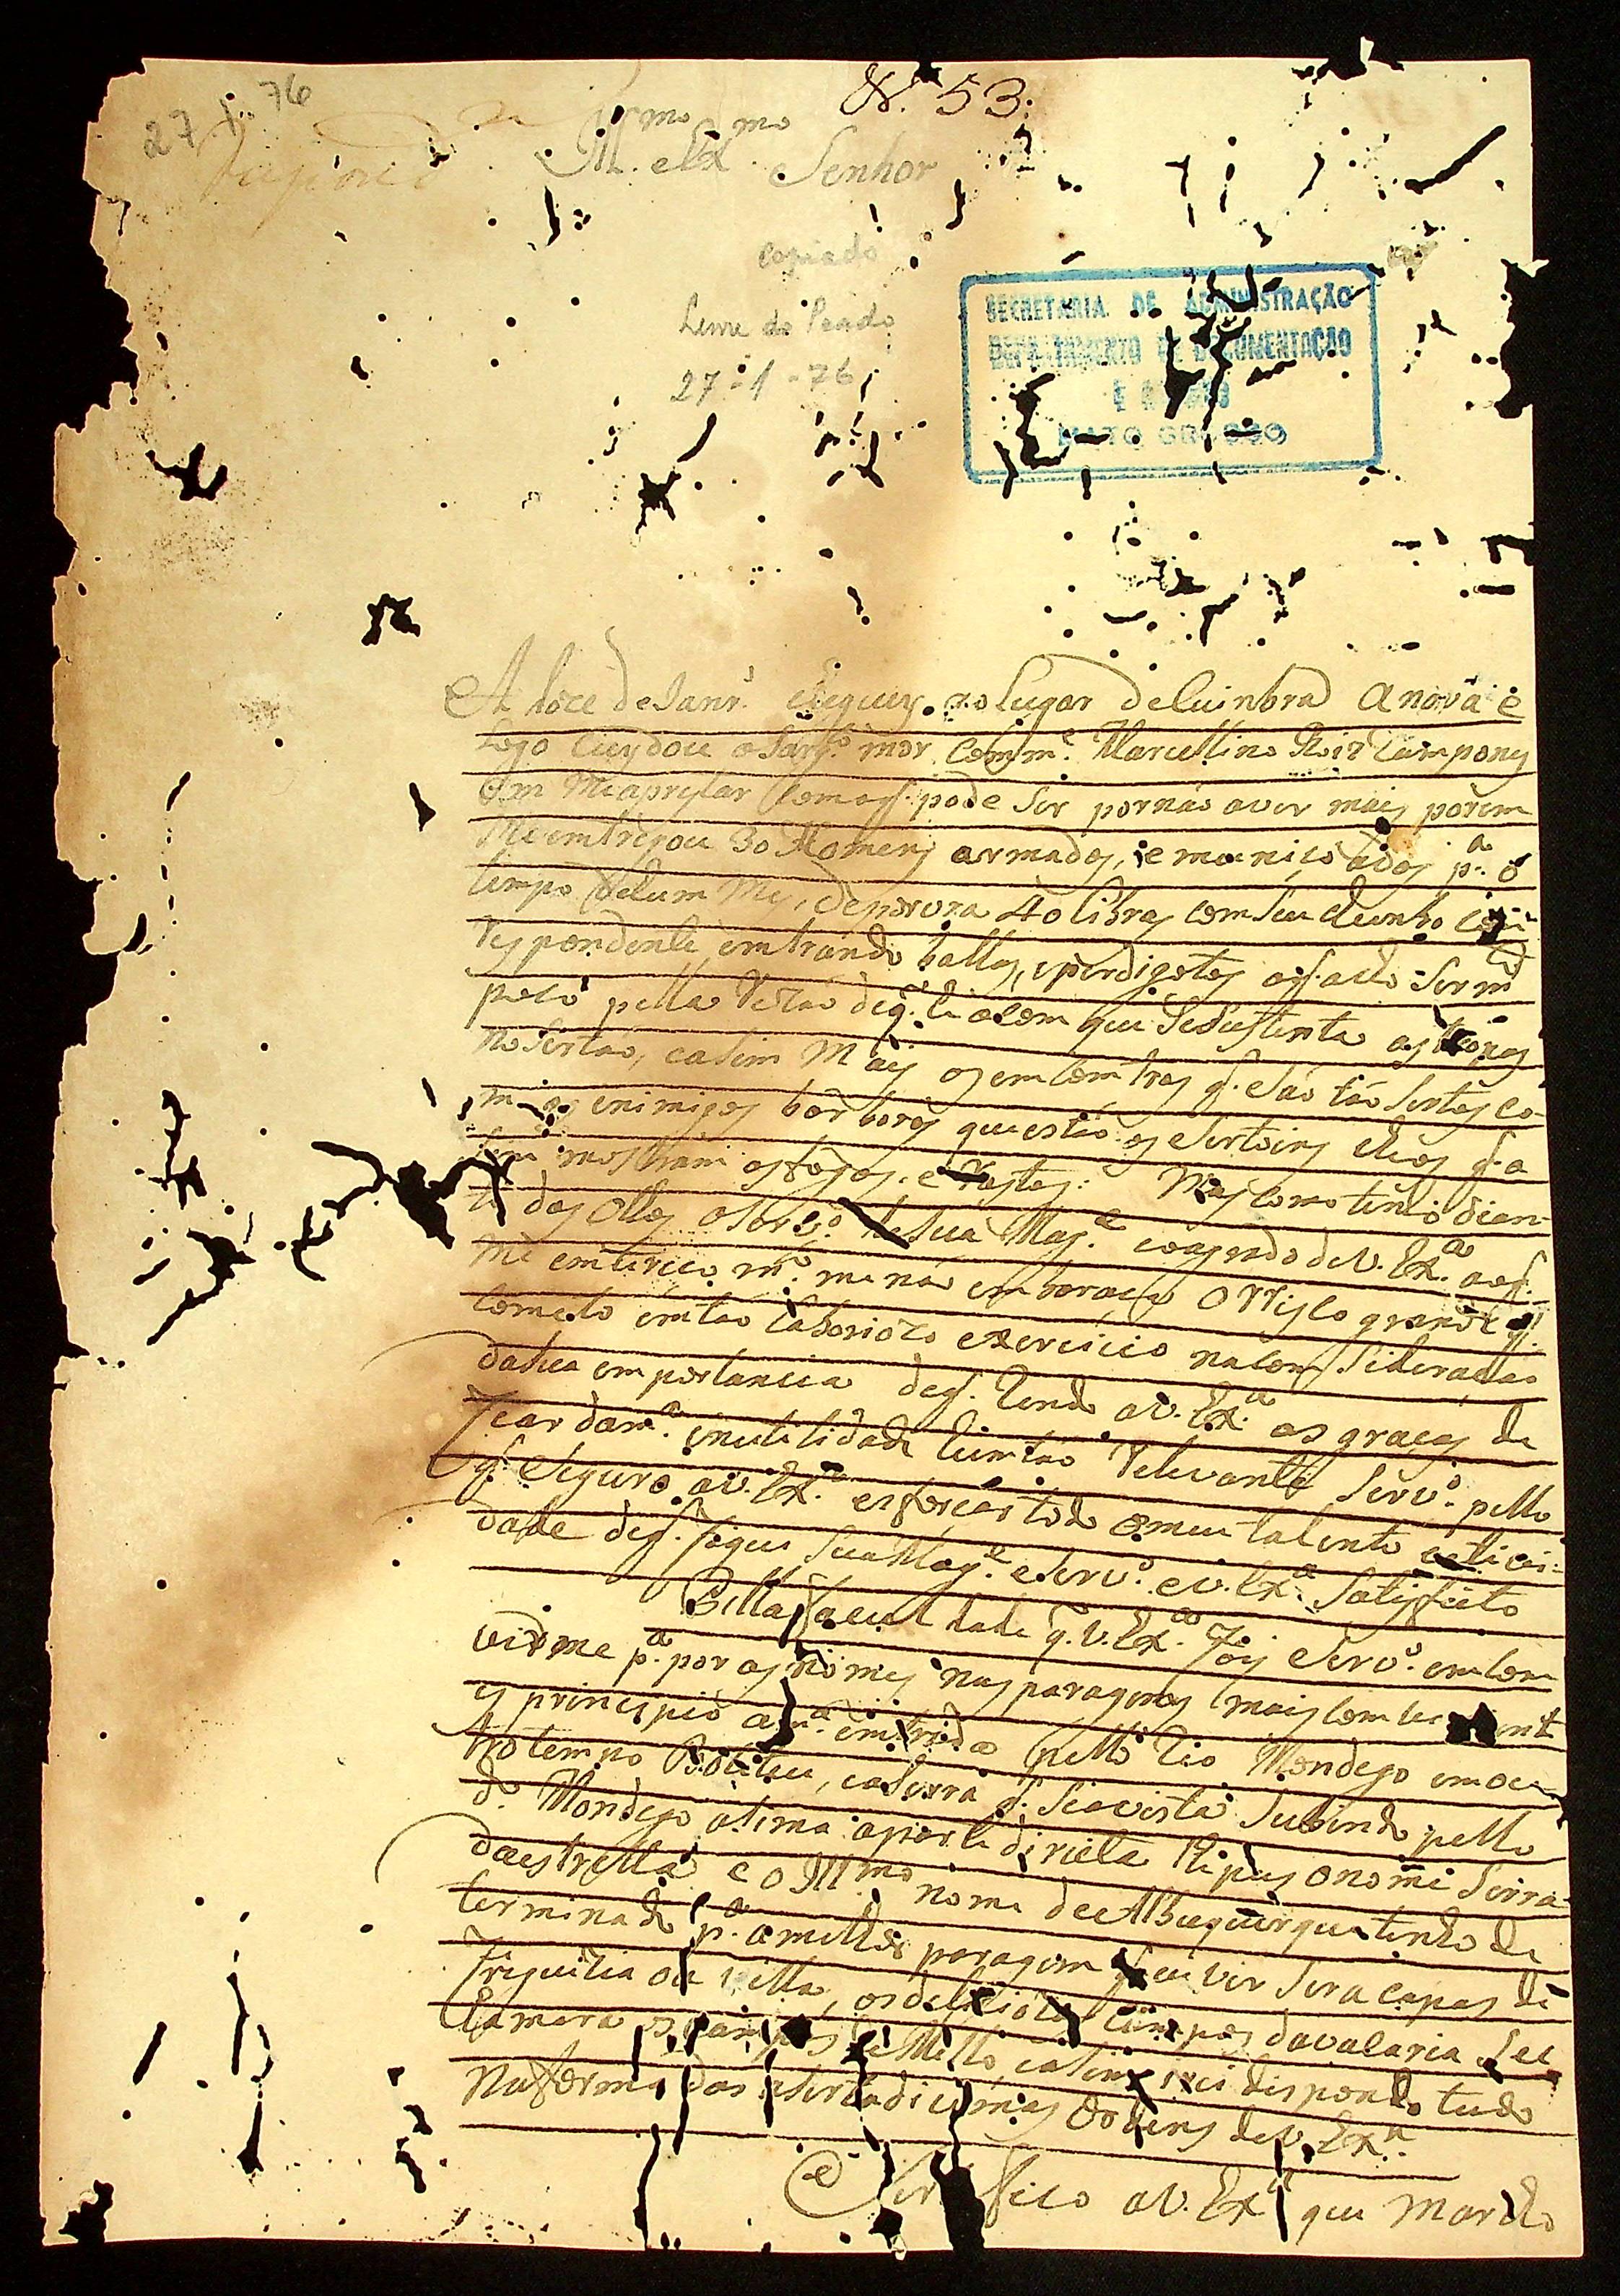 N. 53.
27 1. 76
Ill.mo e Ex.mo Senhor
copiado
Leme do Prado
27-1-76
SECRETARIA DE ADMINISTRAÇÃO
DEPARTAMENTO DE DOCUMENTAÇÃO
E
MATO GROSSO
A doce de Janr.o cheguey ao Lugar de Cuinbra a nova e
logo cuydou o Sarg.to mor Comm.e Marcellino Roiz Camponeς
em me apreztar como q. pode ser por não aver mais porem
me entregou 30 Homens armados, e municiados p.a o
tempo de hum Mez, de porvora 40 libras com seu chunbo cor-
respondente entrando ballas, e perdigotos
pella Rezão de q. he o com que se sustenta as tropas
no sertão, e asim Mais os encontros q. são tão sertos co-
mo os enimigos barboros que estão os sertoins cheos q. a
sim mostram os fogos. e Rastos: Mas como tenho dian-
te dos olhos o Serv.o de Sua Mag.e e o agrado de V. Ex.a a q.
me emtereço m.to me não embaraça o Risco grande q.
cometo em tão laboriozo exercicio na comsideração
da sua emportancia de q. Rendo a V. Ex.a as graças de
ficar da m.a inutilidade hum tão Relevante Serv.o pello
q. seguro a V. Ex.a esforçar todo o meu talento e actevi-
dade de q. fique Sua Mag.e e Serv.o e V. Ex.a Satisfeito
Pella facul dade q. V. Ex.a foy Serv.o em com
vidme p.a por os nomes nas paragens mais
principio a m.a emtrada pello Rio Mondego em ou
tro tempo Boteteu, e a Serra q. se avista Subindo pello
d.o Mondego asima a parte direita lhe pus o nome Serra
da estrella e o Ill.mo nome de Albuquerque tenho de
terminado p.a a melhor paragem q. eu vir sera capas de
Freguezia ou villa, os delicio campos da valaria Se
Camara os campos de Mello, e asim irei dispondo tudo
Na forma das asertadicimas ordens de V. Ex.a
Certefico a V. Ex.a que marcho